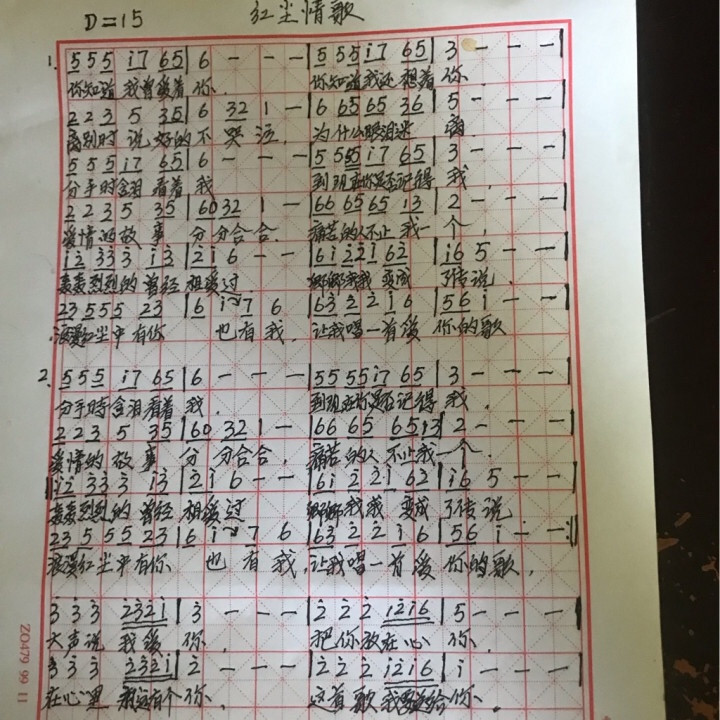 D=15 红尘情歌
1. 5 5 5 i7 65 | 6 - - - | 5 5 5 i7 65 | 3 - - - |
你知道 我曾爱着 你. 你知道我还 想着 你
2 2 3 5 35 | 6 32 1 - | 6 65 65 36 | 5 - - - |
离别时 说 好的 不 哭泣, 为什么眼泪迷 离
5 5 5 i7 65 | 6 - - - | 5 5 55 i7 65 | 3 - - - |
分手时含泪 看着 我 到现在你是否记得 我,
2 2 3 5 35 | 60 32 1 - | 66 65 65 13 | 2 - - - |
爱情的故 事 分分合合. 痛苦的人不止 我一 个,
i2 33 3 i3 | 2 i 6 - - | 6i 22i 62 | i6 5 - - |
轰轰烈烈的 曾经 相爱过 卿卿我我 变成 了传说.
23 55 5 23 | 6 i 7 6 | 63 2 2 i 6 | 56 i - - |
浪漫红尘中有你 也有我, 让我唱一首爱 你的歌
2. 5 5 5 i7 65 | 6 - - - | 55 55 i7 65 | 3 - - - |
分手时含泪看着 我. 到现在你是否记得 我,
2 2 3 5 35 | 60 32 1 - | 66 65 6513 | 2 - - - |
爱情的 故 事 分 分合合, 痛苦的人 不止我一个.
i2 33 3 i3 | 2 i 6 - - | 6i 2 2i 62 | i6 5 - - |
轰轰烈烈的 曾经 相爱过 卿卿我我 变成 了传说
23 5 5 5 23 | 6 i 7 6 | 63 2 2 i 6 | 56 i - - :||
浪漫红尘中有你 也 有 我, 让我唱一首 爱 你的歌,
3 3 3 232i | 3 - - - | 2 2 2 i2i6 | 5 - - - |
大声说 我爱 你, 把你放在心 你,
3 3 3 232i | 2 - - - | 2 2 2 i2i6 | i - - - |
在心里 有个 你. 这首 歌 我要送给你.
ZO479 99 11